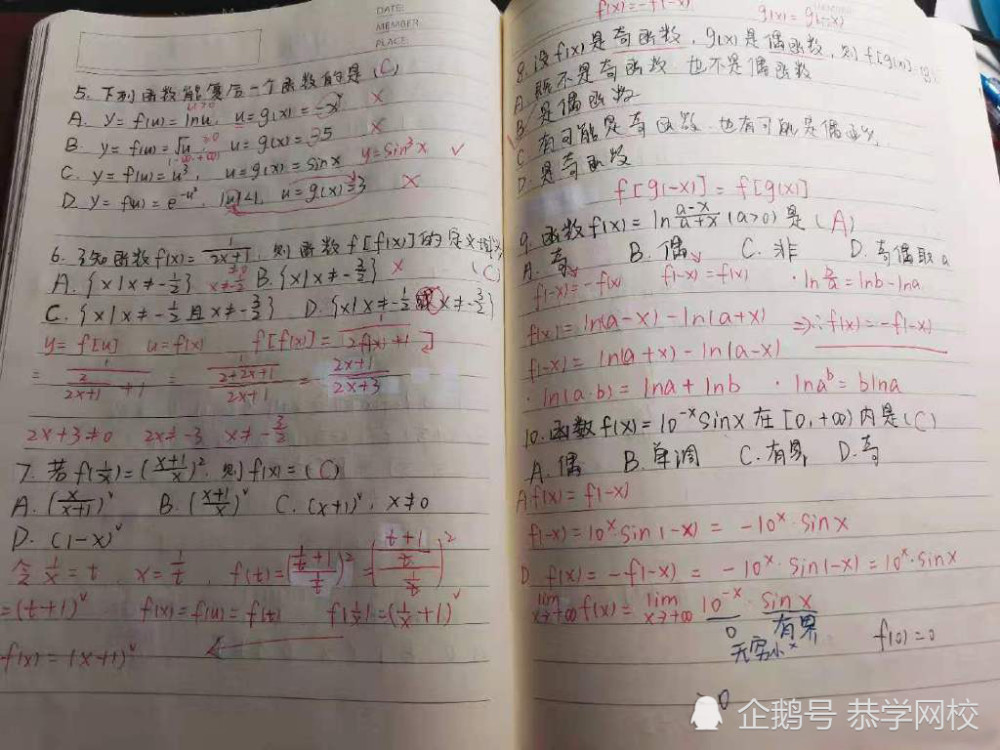 DATE:
MEMBER
PLACE:
5. 下列函数能复合一个函数的是 (C)
A. y = f(u) = lnu, u = g(x) = -x² ×
B. y = f(u) = √u, u = g(x) = -35 ×
C. y = f(u) = u³, u = g(x) = sinx y = sin³x √
6. 已知函数 f(x) = 1/(2x+1), 则函数 f[f(x)] 的定义域为
(C)
A. {x|x≠-1/2} B. {x|x≠-3/2} ×
C. {x|x≠-1/2 且 x≠-3/2} D. {x|x≠-1/2 或 x≠-3/2}
y = f[u] u = f(x) f[f(x)] = 1/(2f(x)+1)
= 1/(2/(2x+1) + 1) = 1/((2+2x+1)/(2x+1)) = (2x+1)/(2x+3)
2x+3≠0 2x≠-3 x≠-3/2
7. 若 f(1/x) = ((x+1)/x)², 则 f(x) = (C)
A. (x/(x+1))² B. ((x+1)/x)² C. (x+1)², x≠0
D. (1-x)²
令 1/x = t, x = 1/t, f(t) = ((1/t+1)/(1/t))² = (((t+1)/t)/(1/t))²
= (t+1)² f(x) = f(u) = f(t) f(1/x) = (1/x+1)²
f(x) = (x+1)²
f(x) = -f(-x) g(x) = g(-x)
8. 设 f(x) 是奇函数, g(x) 是偶函数, 则 f[g(x)]
A. 既不是奇函数, 也不是偶函数
B. 是偶函数
C. 有可能是奇函数, 也有可能是偶函数
D. 是奇函数
f[g(-x)] = f[g(x)]
9. 函数 f(x) = ln (a-x)/(a+x) (a>0) 是 (A)
A. 奇 B. 偶 C. 非 D. 奇偶取 a
f(-x) = -f(x) f(-x) = f(x) · ln b/a = lnb - lna
f(x) = ln(a-x) - ln(a+x) ⇒∴ f(x) = -f(-x)
f(-x) = ln(a+x) - ln(a-x)
· ln(a·b) = lna + lnb · lna^b = blna
10. 函数 f(x) = 10^-x sinx 在 [0,+∞) 内是 (C)
A. 偶 B. 单调 C. 有界 D. 奇
A. f(x) = f(-x)
f(-x) = 10^x · sin(-x) = -10^x · sinx
D. f(x) = -f(-x) = -10^x · sin(-x) = 10^x · sinx
lim x→+∞ f(x) = lim x→+∞ 10^-x · sinx
0 有界
无穷小 × f(0) = 0
0
企鹅号 恭学网校